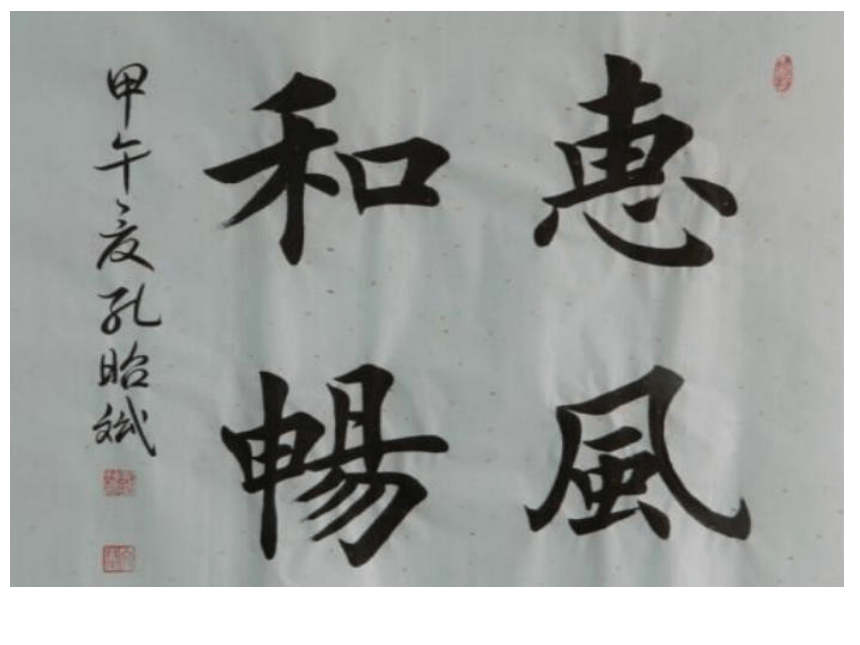 惠風
和暢
甲午夏孔昭斌